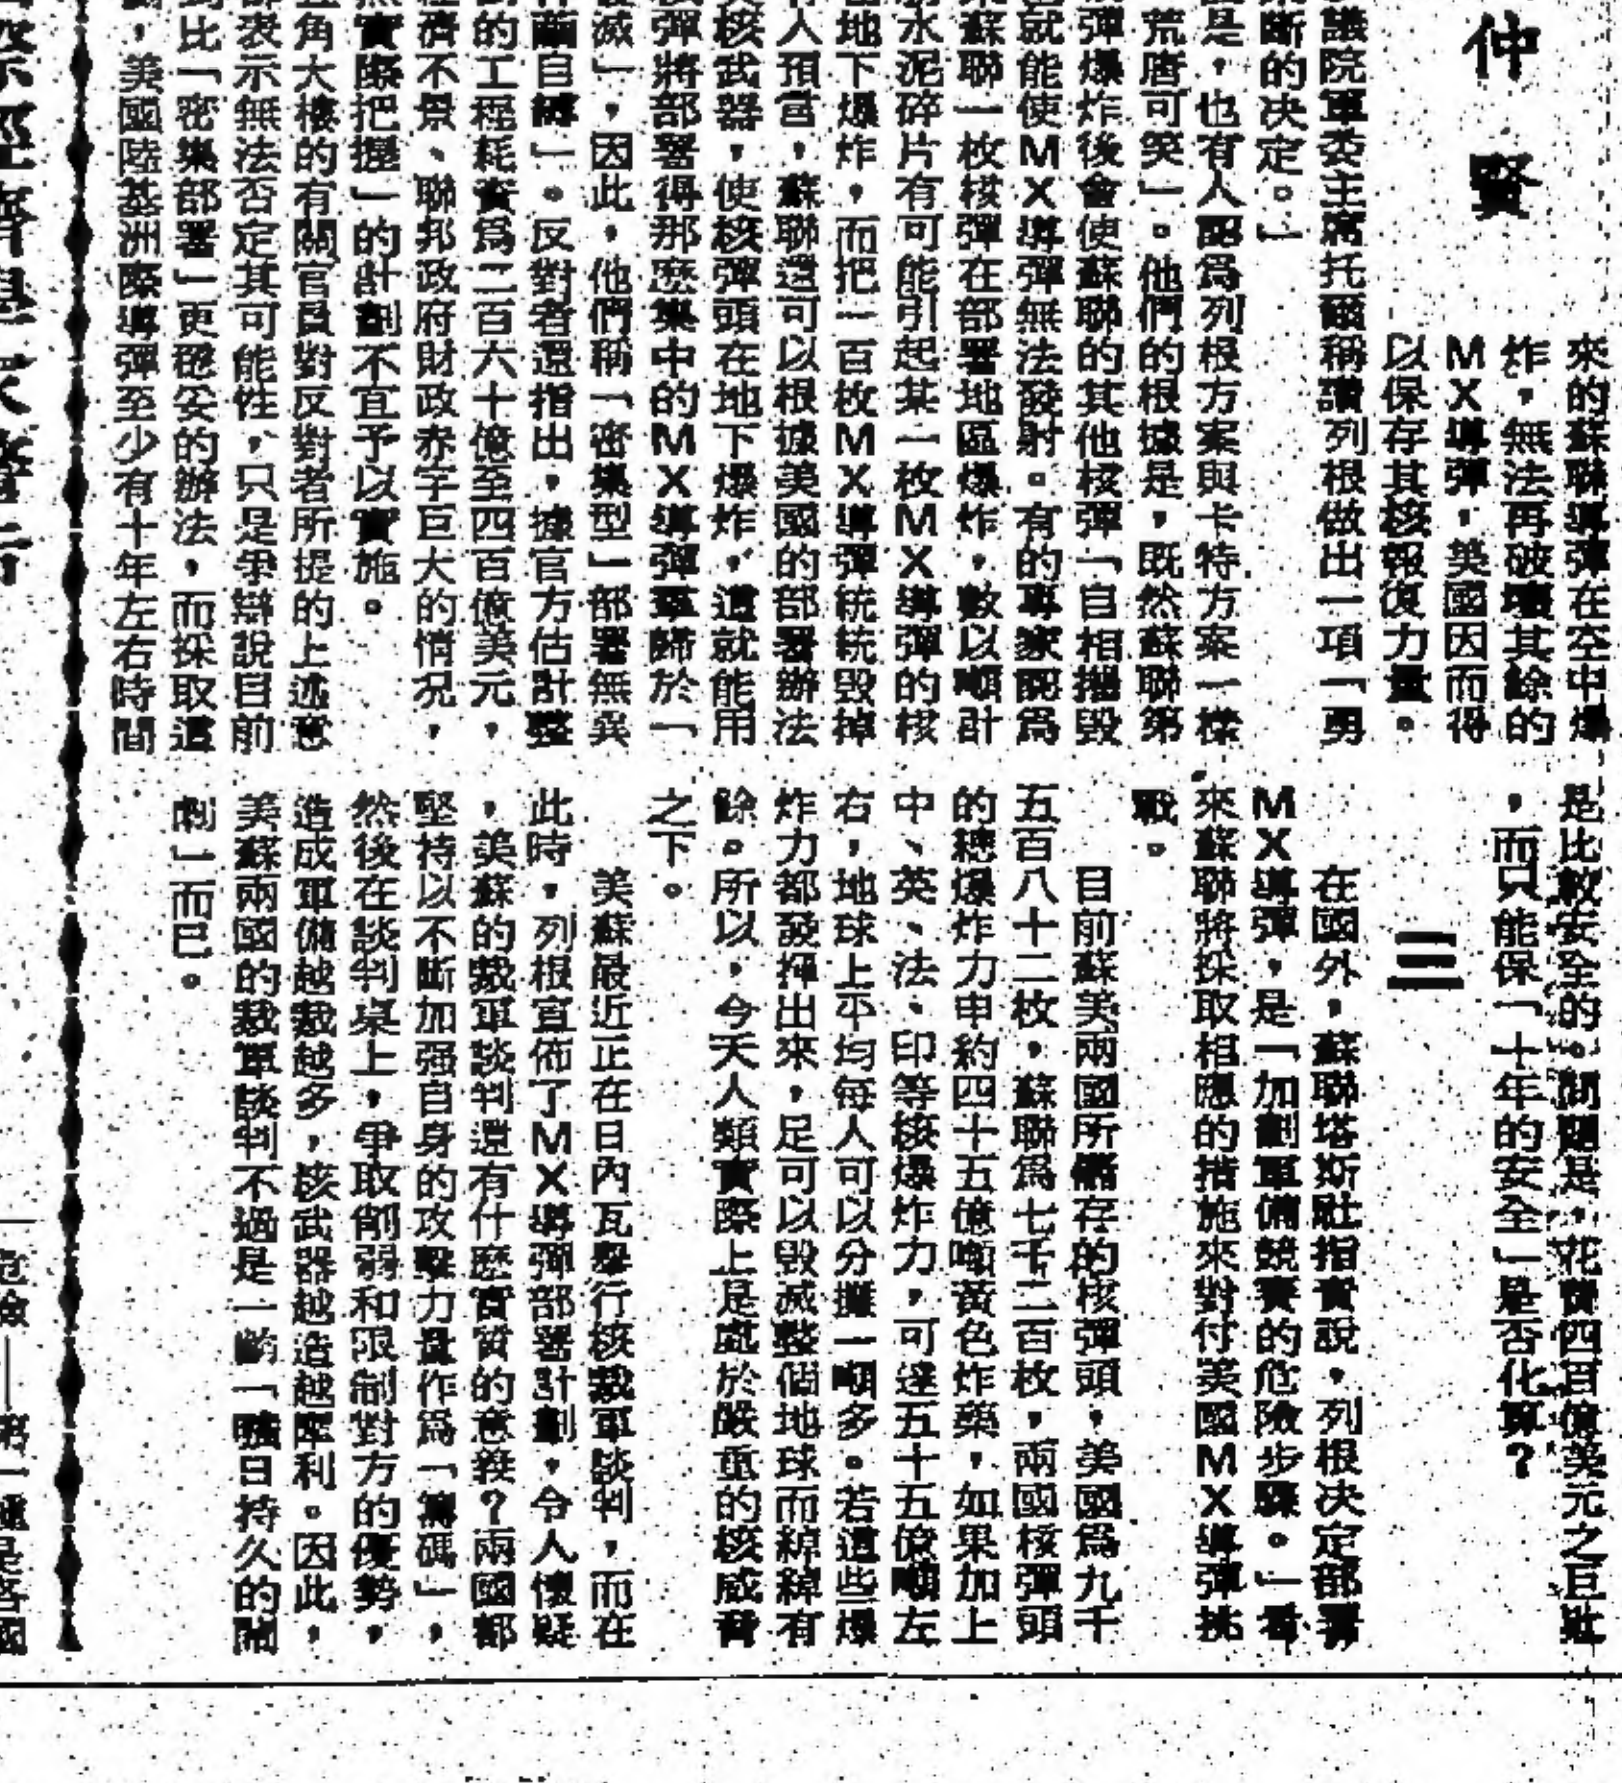 仲賢
來的蘇聯導彈在空中爆
炸，無法再破壞其餘的
MX導彈，美國因而得
以保存其核報復力量。
議院軍委主席托爾稱讚列根做出一項「勇
斷的决定。」
是，也有人認爲列根方案與卡特方案一樣
荒唐可笑」。他們的根據是，既然蘇聯第
彈爆炸後會使蘇聯的其他核彈「自相摧毀
就能使MX導彈無法發射。有的專家認爲
蘇聯一枚核彈在部署地區爆炸，數以噸計
水泥碎片有可能引起某一枚MX導彈的核
地下爆炸，而把一百枚MX導彈統統毀掉
人預言，蘇聯還可以根據美國的部署辦法
核武器，使核彈頭在地下爆炸，這就能用
彈將部署得那麽集中的MX導彈羣歸於「
滅」，因此，他們稱「密集型」部署無異
繭自縛」。反對者還指出，據官方估計整
的工程耗資爲二百六十億至四百億美元，
濟不景、聯邦政府財政赤字巨大的情况，
實際把握」的計劃不宜予以實施。
角大樓的有關官員對反對者所提的上述意
表示無法否定其可能性，只是爭辯說目前
比「密集部署」更穩妥的辦法，而採取這
，美國陸基洲際導彈至少有十年左右時間
是比較安全的。問題是，花費四百億美元之巨欵
，而只能保「十年的安全」是否化算？
三
在國外，蘇聯塔斯社指責說，列根决定部署
MX導彈，是「加劇軍備競賽的危險步驟。」看
來蘇聯將採取相應的措施來對付美國MX導彈挑
戰。
目前蘇美兩國所儲存的核彈頭，美國爲九千
五百八十二枚，蘇聯爲七千二百枚，兩國核彈頭
的總爆炸力申約四十五億噸黃色炸藥，如果加上
中、英、法、印等核爆炸力，可達五十五億噸左
右，地球上平均每人可以分攤一噸多。若這些爆
炸力都發揮出來，足可以毀滅整個地球而綽綽有
餘。所以，今天人類實際上是處於嚴重的核威脅
之下。
美蘇最近正在日內瓦舉行核裁軍談判，而在
此時，列根宣佈了MX導彈部署計劃，令人懷疑
，美蘇的裁軍談判還有什麽實質的意義？兩國都
堅持以不斷加强自身的攻擊力量作爲「籌碼」，
然後在談判桌上，爭取削弱和限制對方的優勢，
造成軍備越裁越多，核武器越造越犀利。因此，
美蘇兩國的裁軍談判不過是一齣「曠日持久的鬧
劇」而已。